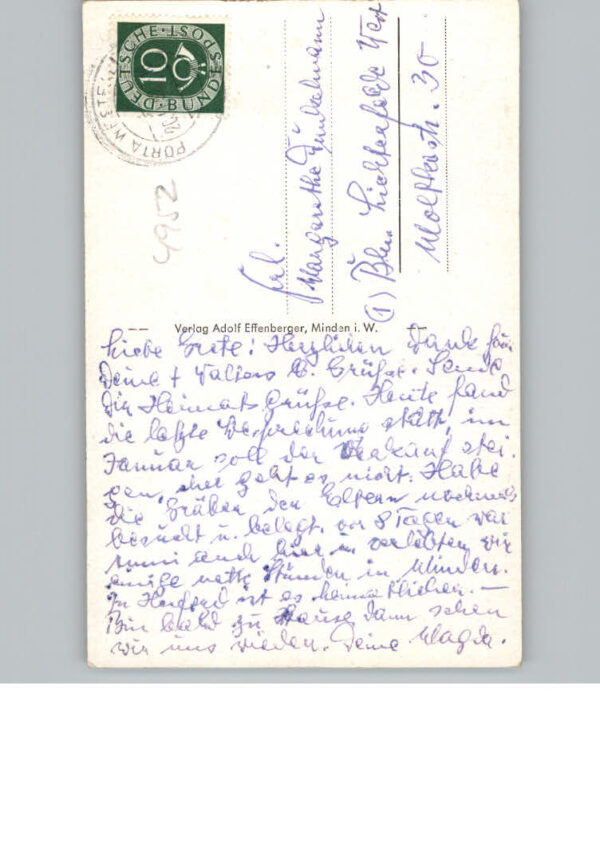 DEUTSCHE BUNDESPOST
10
PORTA WESTF
4952
Frl.
Margarethe
(1) Bln. Lichterfelde West
Moltkestr. 30
Verlag Adolf Effenberger, Minden i. W.
Liebe Grete! Herzlichen Dank für
Deine + Walters l. Grüße. Sende
Dir Heimatsgrüße. Heute fand
die letzte Besprechung statt, im
Januar soll der Verkauf stei-
gen, eher geht es nicht. Habe
die Gräber der Eltern nochmals
besucht u. belegt. vor 8 Tagen war
auch hier verlebten wir
einige nette Stunden in Minden.
In ist es heimatlicher. —
Bin bald zu Hause dann sehen
wir uns wieder. Deine Magda.